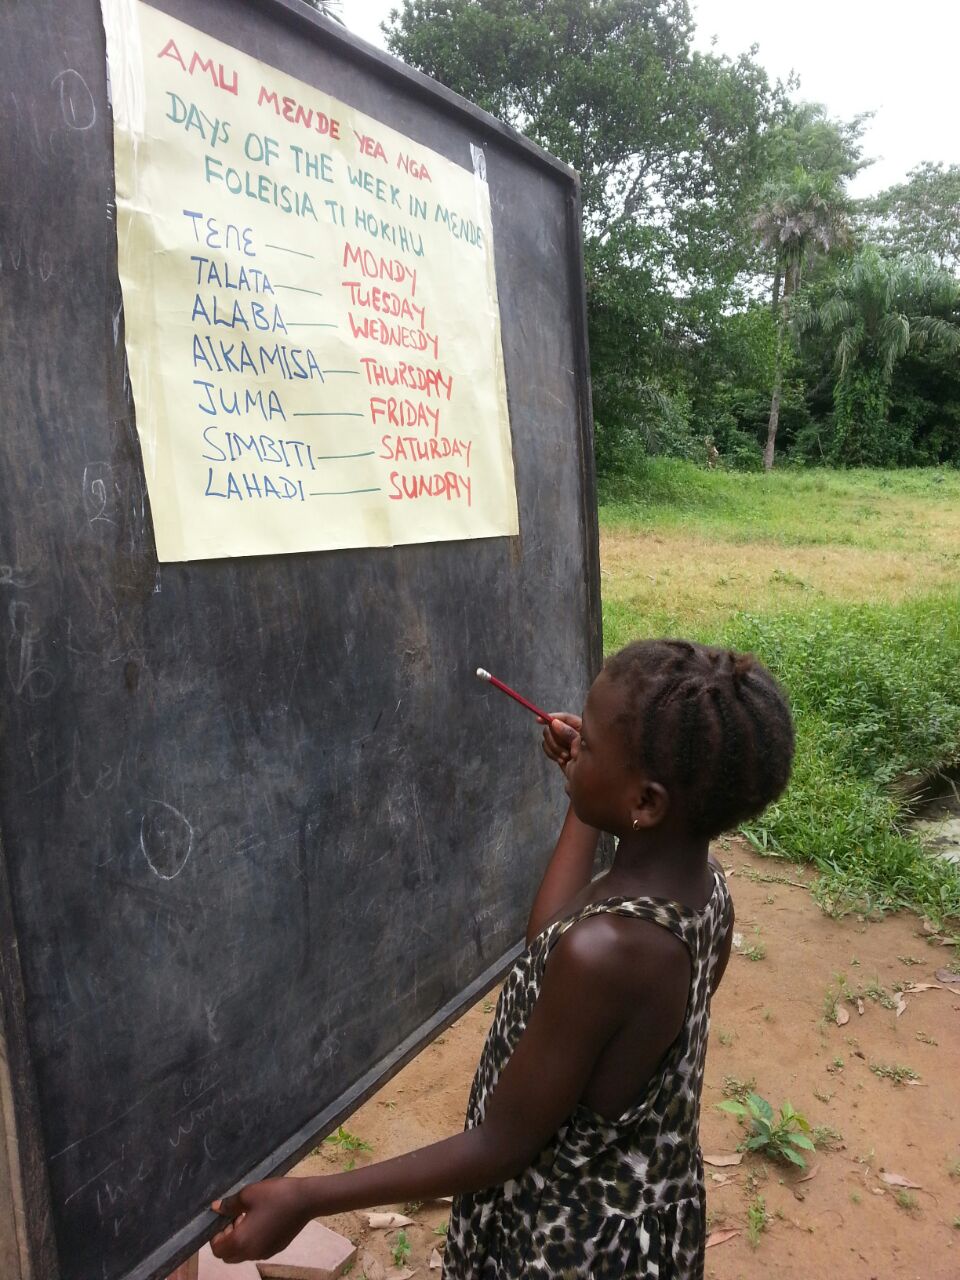 AMU MENDE YEA NGA
DAYS OF THE WEEK IN MENDE
FOLEISIA TI HOKIHU
TƐNƐ — MONDY
TALATA — TUESDAY
ALABA — WEDNESDY
AIKAMISA — THURSDAY
JUMA — FRIDAY
SIMBITI — SATURDAY
LAHADI — SUNDAY